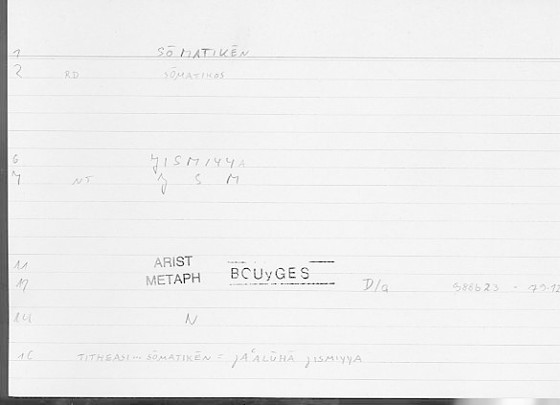 1 SŌMATIKĒN
2 RD SŌMATIKOS
6 JISMIYYA
7 NT J S M
11 ARIST BOUyGES
12 METAPH D/a 988b23 - 79.12
14 N
16 TITHEASI ... SŌMATIKĒN = JAʿALŪHĀ JISMIYYA